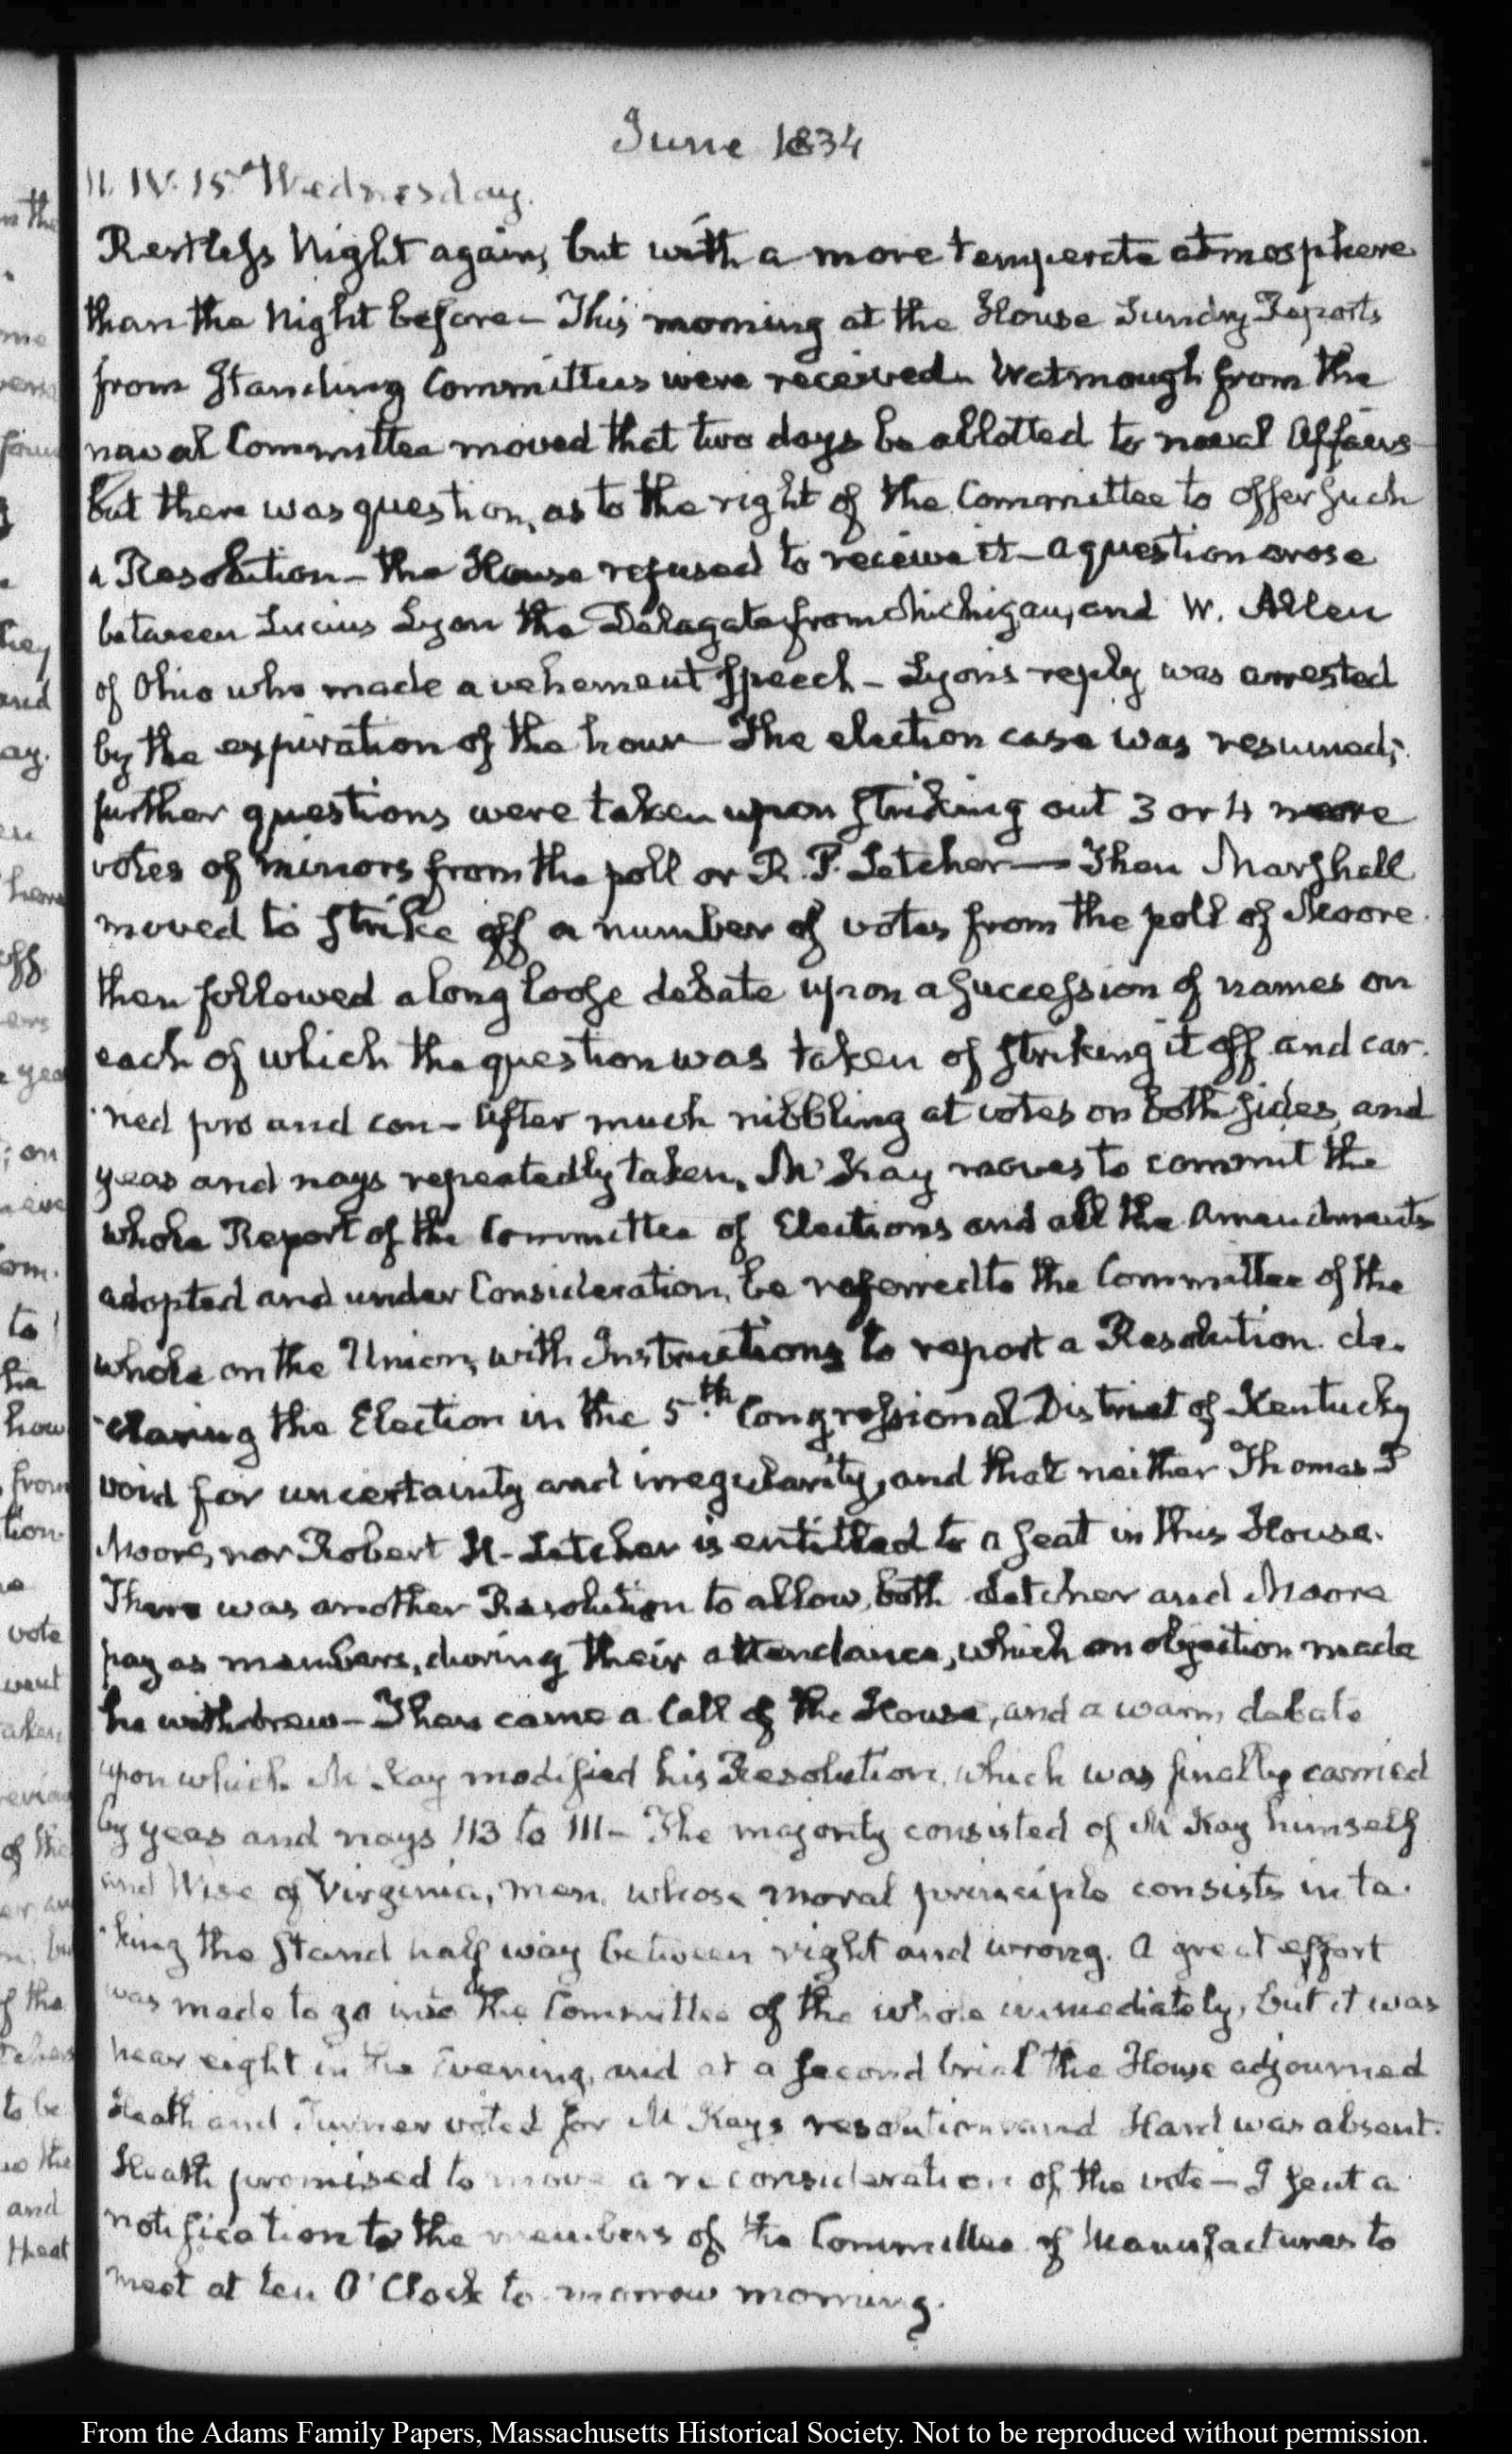 June 1834
11. IV. 15. Wednesday.
Restless Night again, but with a more temperate atmosphere
than the Night before – This morning at the House Sundry Reports
from Standing Committees were received. Watmough from the
naval Committee moved that two days be allotted to naval Affairs
but there was question, as to the right of the Committee to offer such
a Resolution – the House refused to receive it – a question arose
between Lucius Lyon the Delegate from Michigan, and W. Allen
of Ohio who made a vehement Speech – Lyon's reply was arrested
by the expiration of the hour – The election case was resumed;
further questions were taken upon striking out 3 or 4 more
votes of minors from the poll or R. P. Letcher — Then Marshall
moved to strike off a number of votes from the poll of Moore
then followed a long loose debate upon a succession of names on
each of which the question was taken of striking it off and car-
-ried pro and con – After much nibbling at votes on both sides, and
yeas and nays repeatedly taken, McKay moves to commit the
whole Report of the Committee of Elections and all the Amendments
adopted and under Consideration, be referred to the Committee of the
whole on the Union, with Instructions to report a Resolution de-
-claring the Election in the 5th Congressional District of Kentucky
void for uncertainty and irregularity, and that neither Thomas P
Moore, nor Robert H. Letcher is entitled to a seat in this House.
There was another Resolution to allow both Letcher and Moore
pay as members, during their attendance, which on objection made
he withdrew – Then came a Call of the House, and a warm debate
upon which McKay modified his Resolution, which was finally carried
by yeas and nays 113 to 111 – The majority consisted of McKay himself
and Wise of Virginia, men whose moral principle consists in ta-
-king the stand half way between right and wrong. A great effort
was made to go into the Committee of the whole immediately, but it was
near eight in the Evening, and at a second trial the House adjourned
Heath and Turner voted for McKay's resolution and Hard was absent.
Heath promised to move a reconsideration of the vote – I sent a
notification to the members of the Committee of Manufactures to
meet at ten O'Clock to-morrow morning.
From the Adams Family Papers, Massachusetts Historical Society. Not to be reproduced without permission.